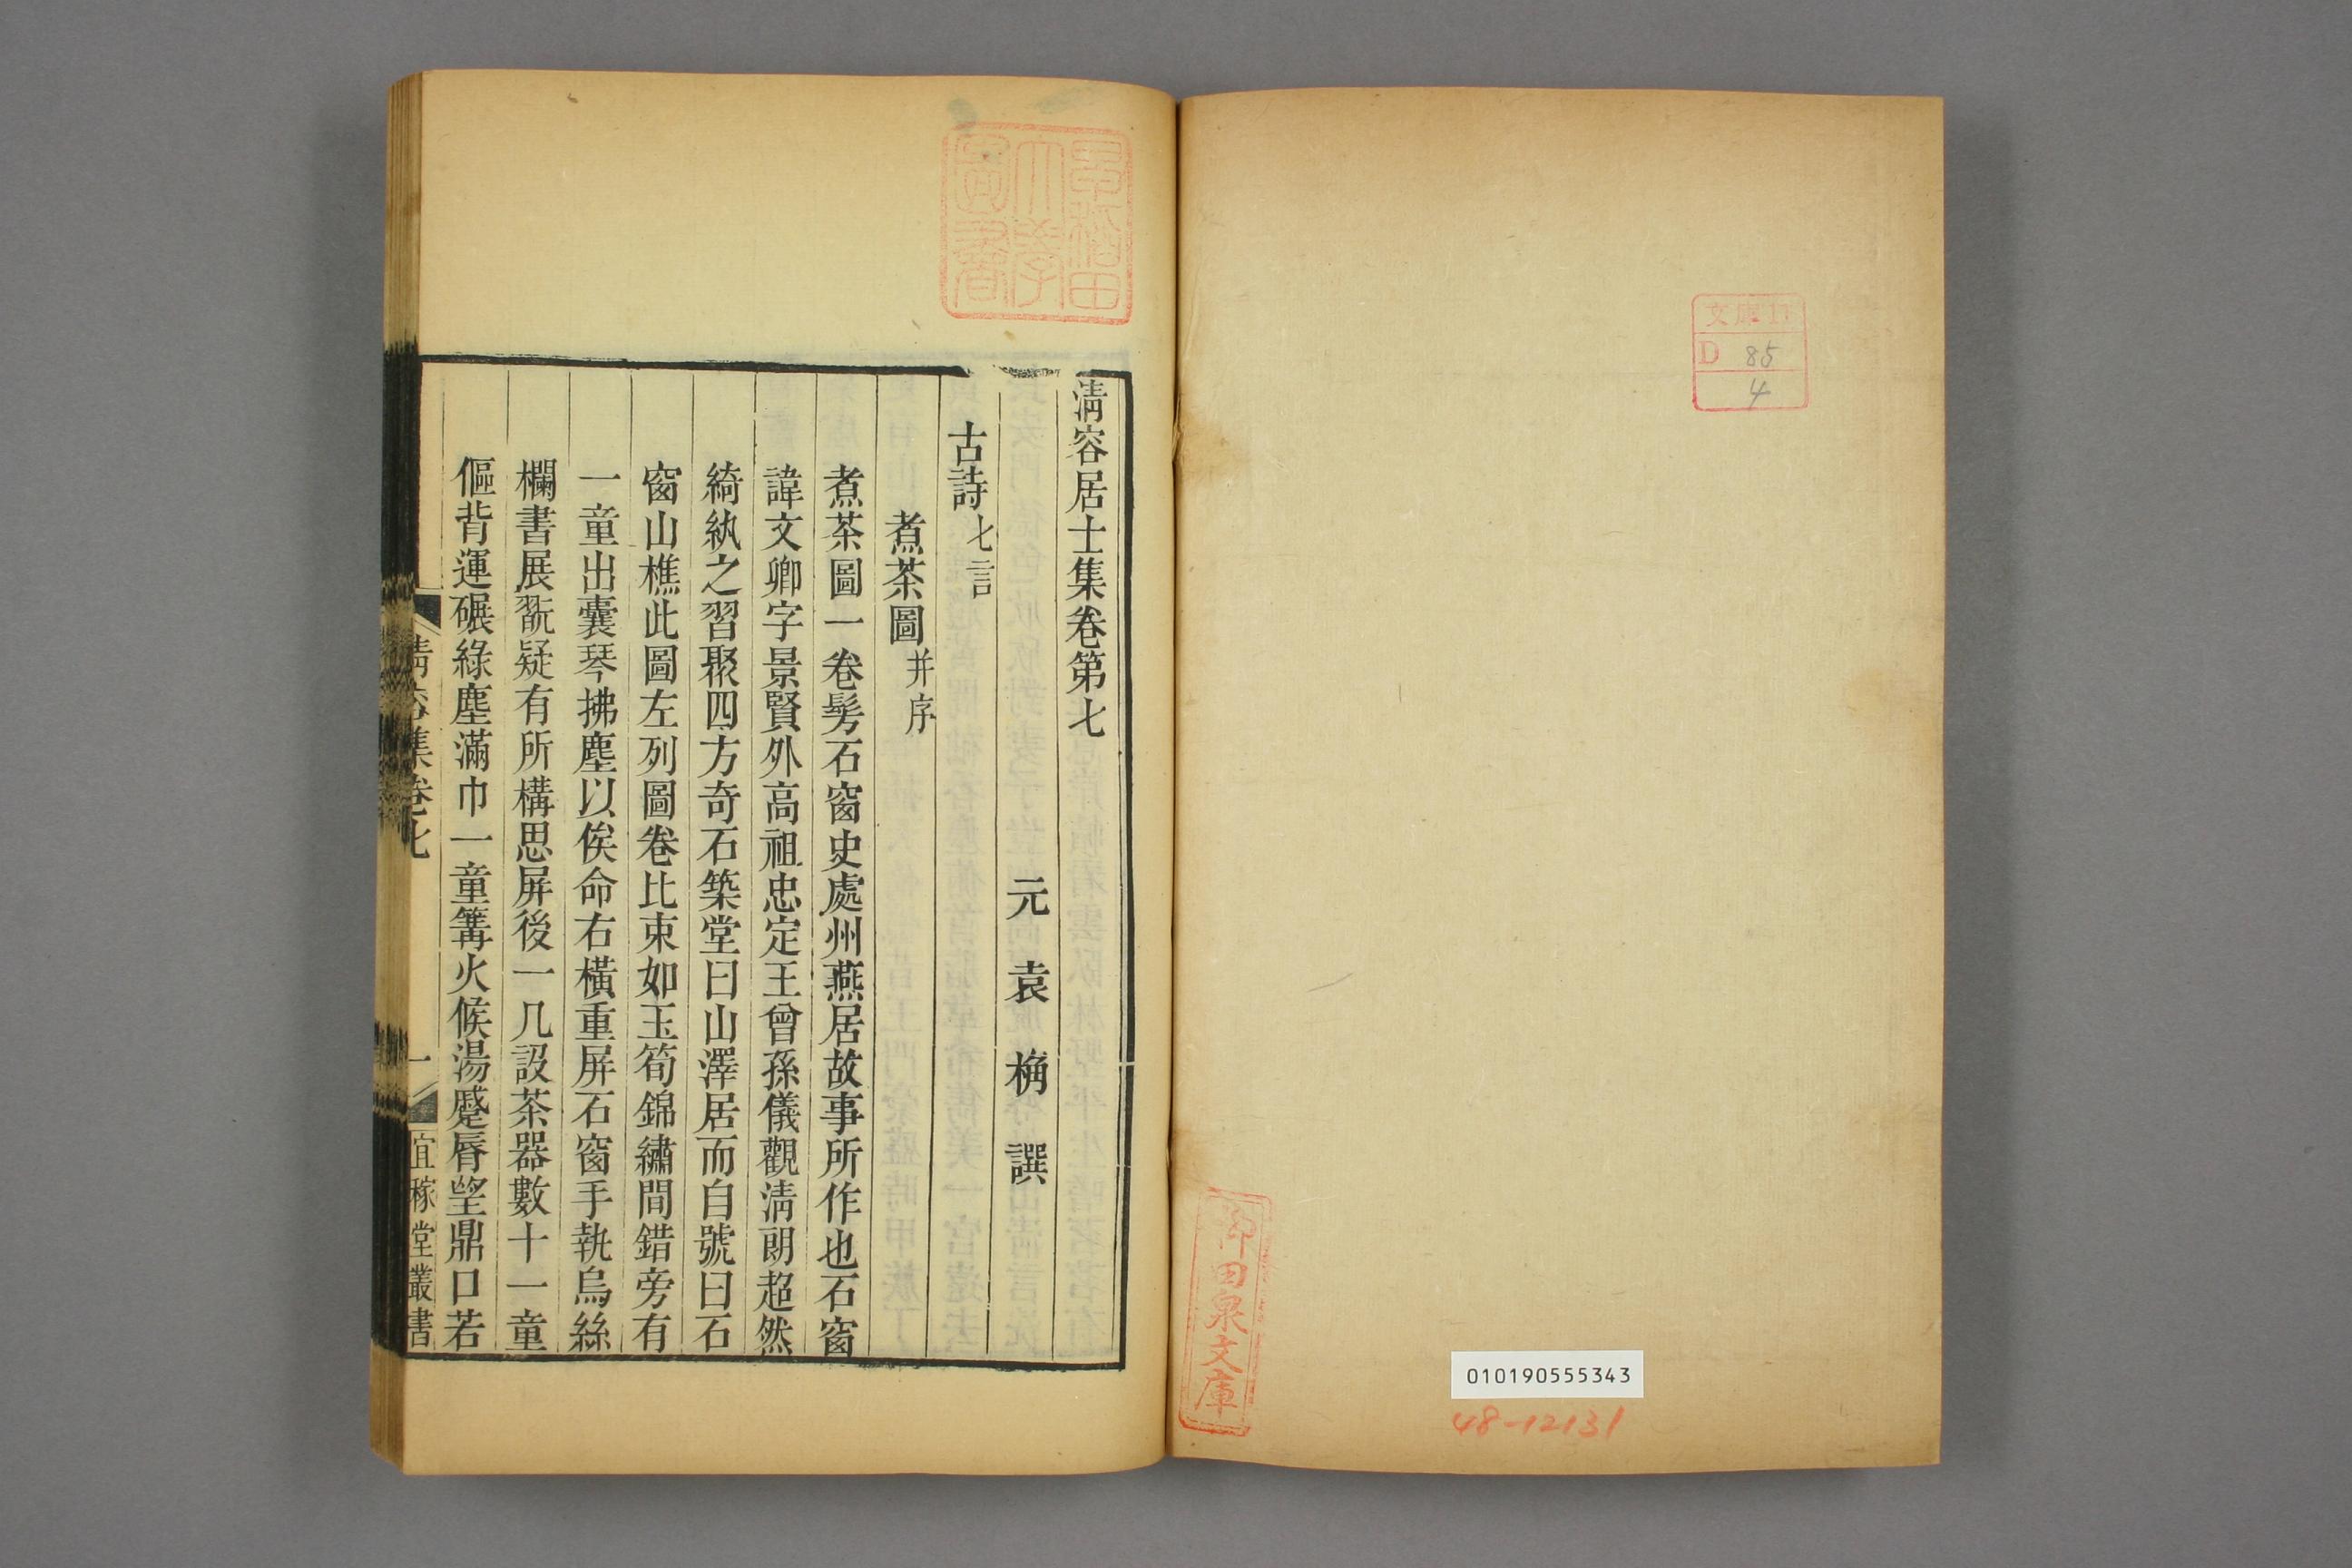 文庫17
D 85
4
010190555343
48-12131
田泉文庫
早稲田
大學
圖書
清容居士集卷第七
元袁桷譔
古詩七言
煮茶圖并序
煮茶圖一卷髣石窗史處州燕居故事所作也石窗
諱文卿字景賢外高祖忠定王曾孫儀觀清朗超然
綺紈之習聚四方奇石築堂曰山澤居而自號曰石
窗山樵此圖左列圖卷比束如玉筍錦繡間錯旁有
一童出囊琴拂塵以俟命右橫重屏石窗手執烏絲
欄書展翫疑有所構思屏後一几設茶器數十一童
傴背運碾綠塵滿巾一童篝火候湯蹙脣望鼎口若
清容集卷七
一
宜稼堂叢書